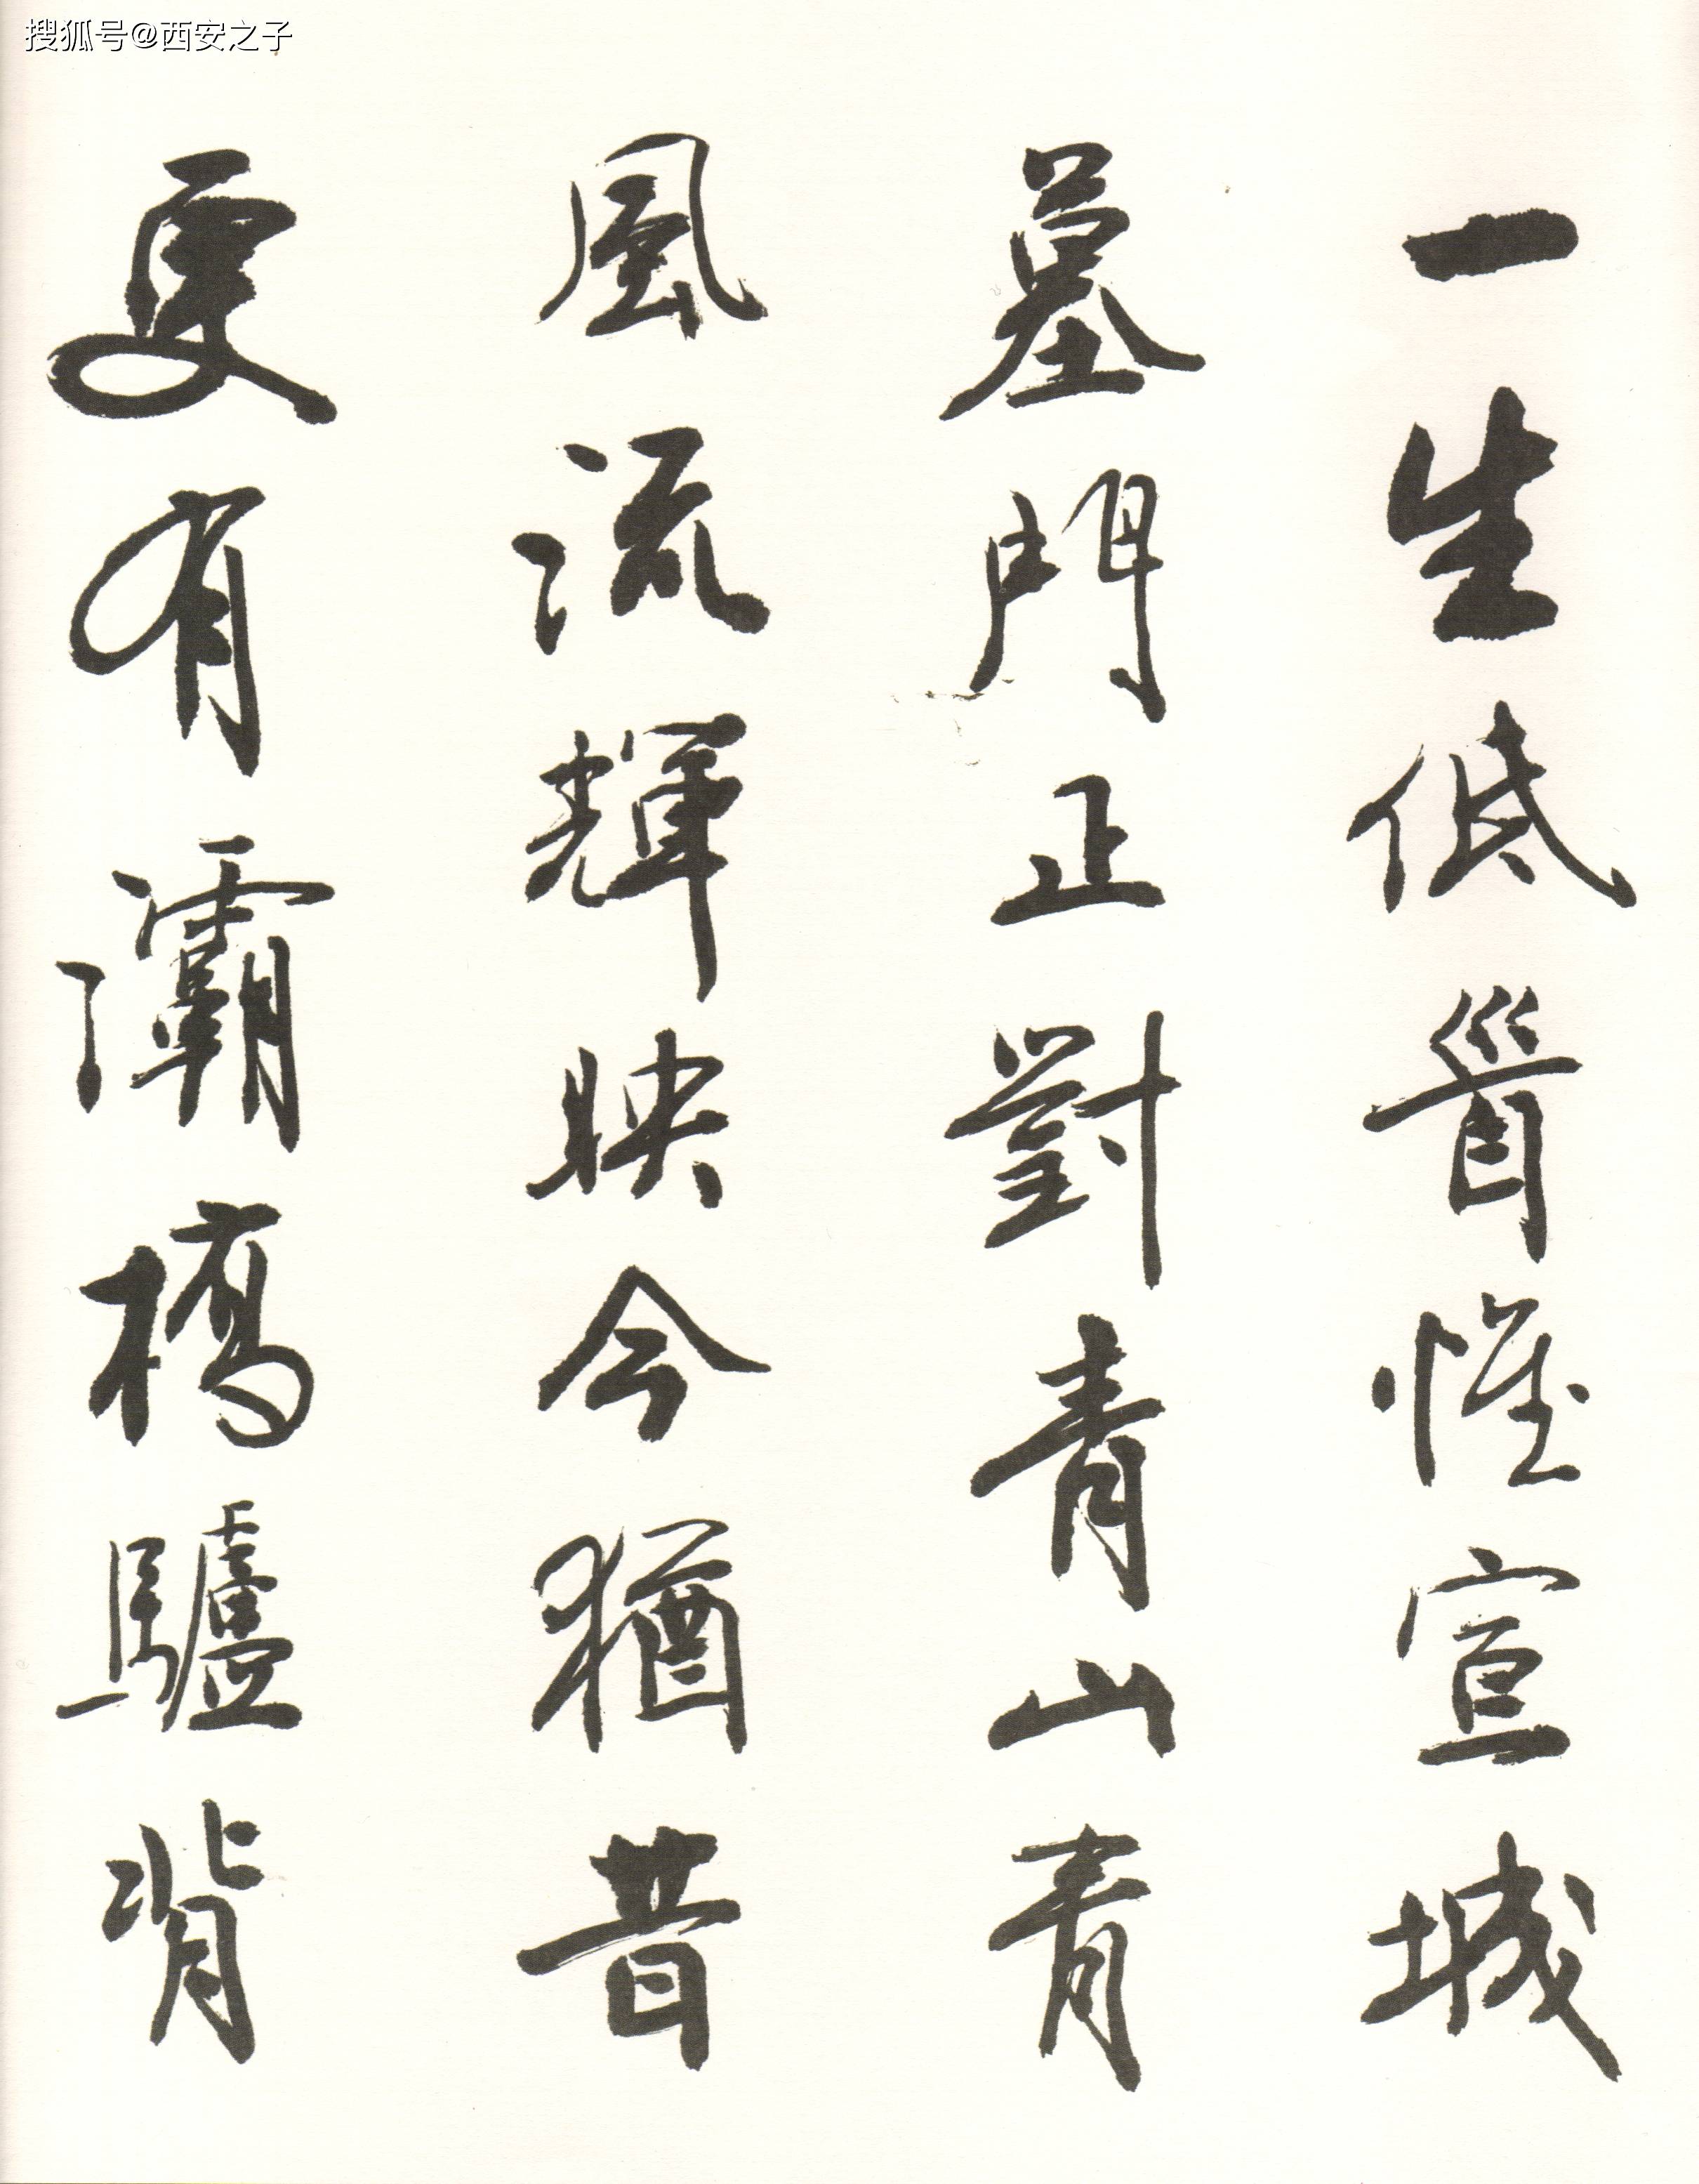 搜狐号@西安之子
一生低首惟宣城
墓門正對青山青
風流輝映今猶昔
更有灞橋驢背